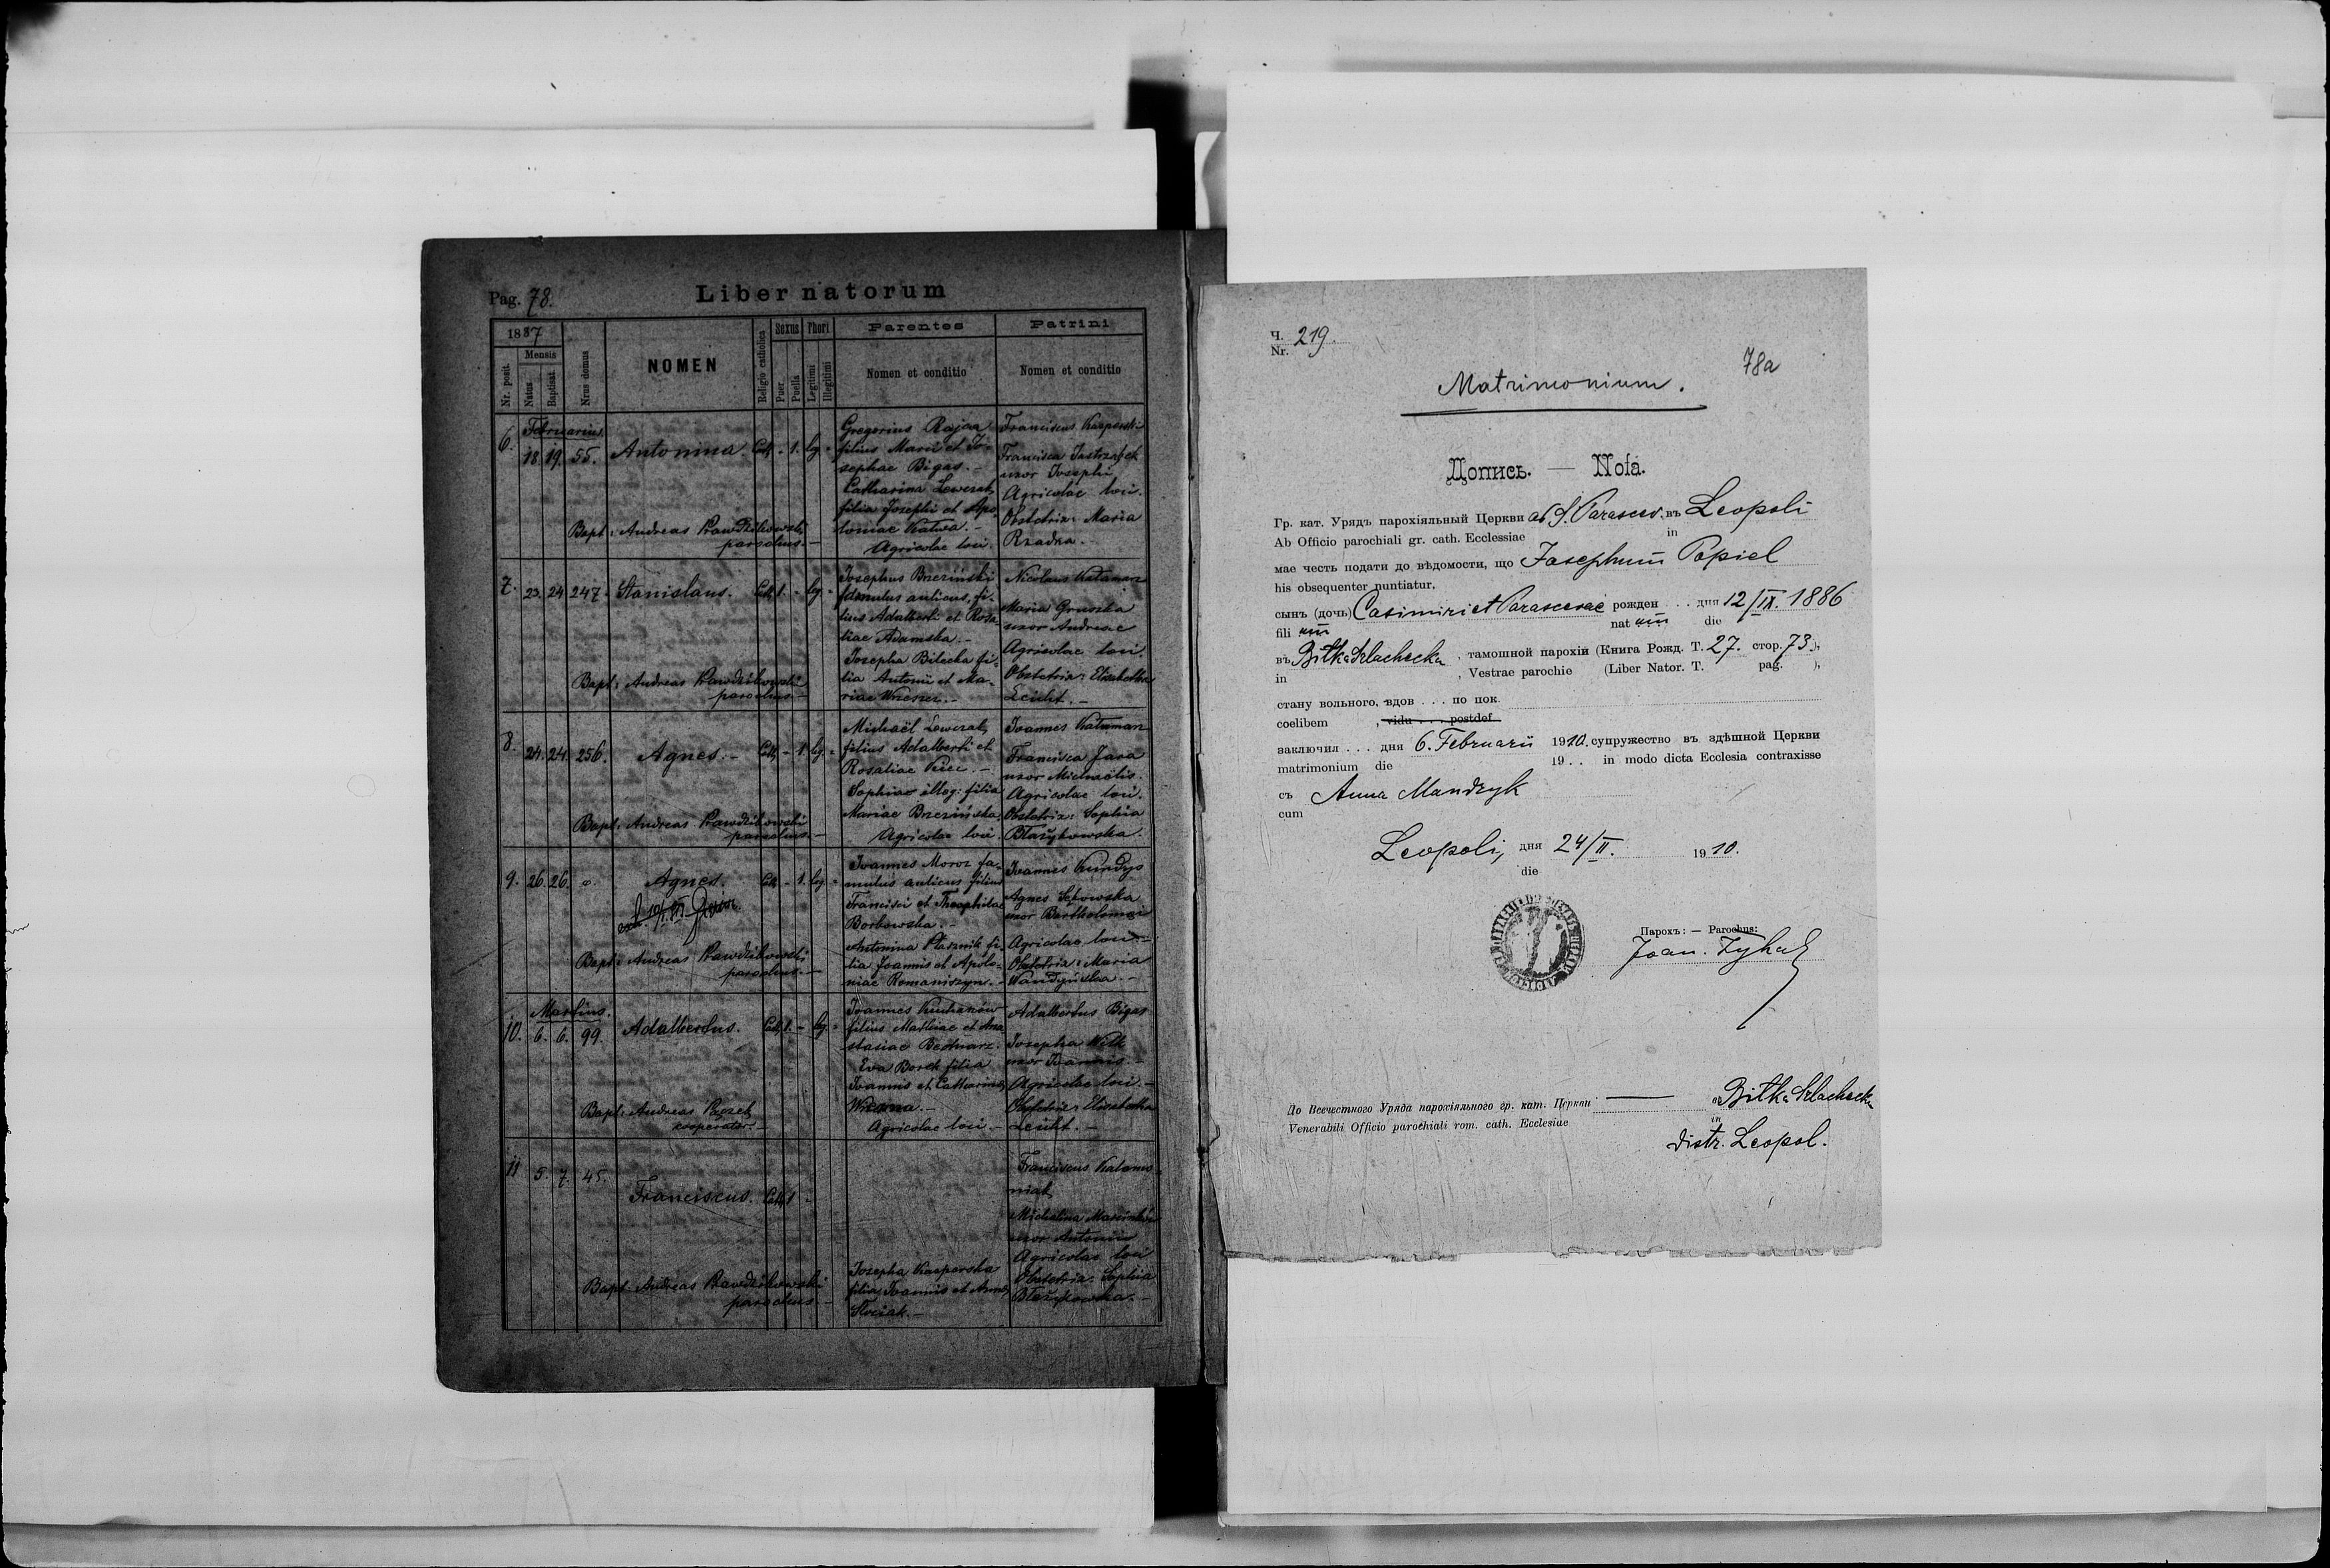 Pag. 78.
Liber natorum
1887
Nr. posit.
Mensis
Natus
Baptisat.
Nrus domus
NOMEN
Religio catholica
Sexus
Puer
Puella
Thori
Legitimi
Illegitimi
Parentes
Nomen et conditio
Patrini
Nomen et conditio
Februarius
6. 18. 19. 55. Antonina. Cath - 1. leg. -
Gregorius Rajca
filius Marci et Jo-
sephae Bigas. -
Catharina
filia Josephi et Apo-
loniae
Agricolae loci.
Franciscus Kasperski
Francisca Jastrząbek
uxor Josephi
Agricolae loci.
Obstetrix: Maria
Rzadka. -
Bapt: Andreas
parochus. -
7. 23. 24. 247. Stanislaus. Cath 1. - leg. -
Josephus Brzeziński
famulus aulicus, fi-
lius Adalberti et Rosa-
liae Adamska. -
Josepha Bilecka fi-
lia Antonii et Ma-
riae
Nicolaus
Maria Gruszka
uxor Andreae
Agricolae loci.
Obstetrix: Elisabetha
Leicht. -
Bapt: Andreas
parochus. -
8. 24. 24. 256. Agnes. - Cath - 1. leg. -
Michaël
filius Adalberti et
Rosaliae
Sophia illeg: filia
Mariae Brzezińska
Agricolae loci.
Joannes
Francisca Jara
uxor Michaëlis.
Agricolae loci.
Obstetrix: Sophia
Błażykowska.
Bapt: Andreas
parochus. -
9. 26. 26. Agnes. Cath - 1. leg. -
Joannes Moroz fa-
mulus aulicus filius
Francisci et Theophilae
Borkowska. -
Antonina Ptasznik fi-
lia Joannis et Apolo-
niae Romaniszyn. -
Joannes Kundys
Agnes
uxor Bartholomei
Agricolae loci. -
Obstetrix: Maria
Bapt: Andreas
parochus. -
Martius.
10. 6. 6. 99. Adalbertus. Cath 1. - leg. -
Joannes
filius Mathiae et Ana-
stasiae Bednarz.
Eva Borek filia
Joannis et Catharinae
Agricolae loci. -
Adalbertus Bigas
Josepha Wilk
uxor Joannis. -
Agricolae loci. -
Obstetrix: Elisabetha
Leicht. -
Bapt: Andreas
cooperator. -
11 5. 7. 45. Franciscus. Cath 1 -
Josepha Kasperska
filia Joannis et Annae
Franciscus
Michalina
uxor Antonii
Agricolae loci
Obstetrix: Sophia
Błażykowska. -
Bapt: Andreas
parochus. -
Ч. 219.
Nr.
78a
Matrimonium.
Допись. — Nota.
Гр. кат. Урядъ парохіяльный Церкви ad S. Parascev. въ Leopoli
Ab Officio parochiali gr. cath. Ecclessiae in
мае честь подати до вѣдомости, що Josephum Popiel
his obsequenter nuntiatur.
сынъ (дочь) Casimiri et Parascevae рожден . . . дня 12/IX. 1886
fili um nat um die
въ Biłka Szlachecka, тамошной парохіи (Книга Рожд. Т. 27. стор. 73.),
in , Vestrae parochie (Liber Nator. T. pag. ),
стану вольного, вдов . . . по пок.
coelibem , vidu . . . postdef.
заключил . . . дня 6. Februarii 1910. супружество въ здѣшной Церкви
matrimonium die 19 . . in modo dicta Ecclesia contraxisse
съ Anna Mandzyk
cum
Leopoli, дня 24/II. 1910.
die
Парохъ: — Parochus:
До Всечестного Уряда парохіяльного гр. кат. Церкви — в Biłka Szlachecka
Venerabili Officio parochiali rom. cath. Ecclesiae in
distr. Leopol.